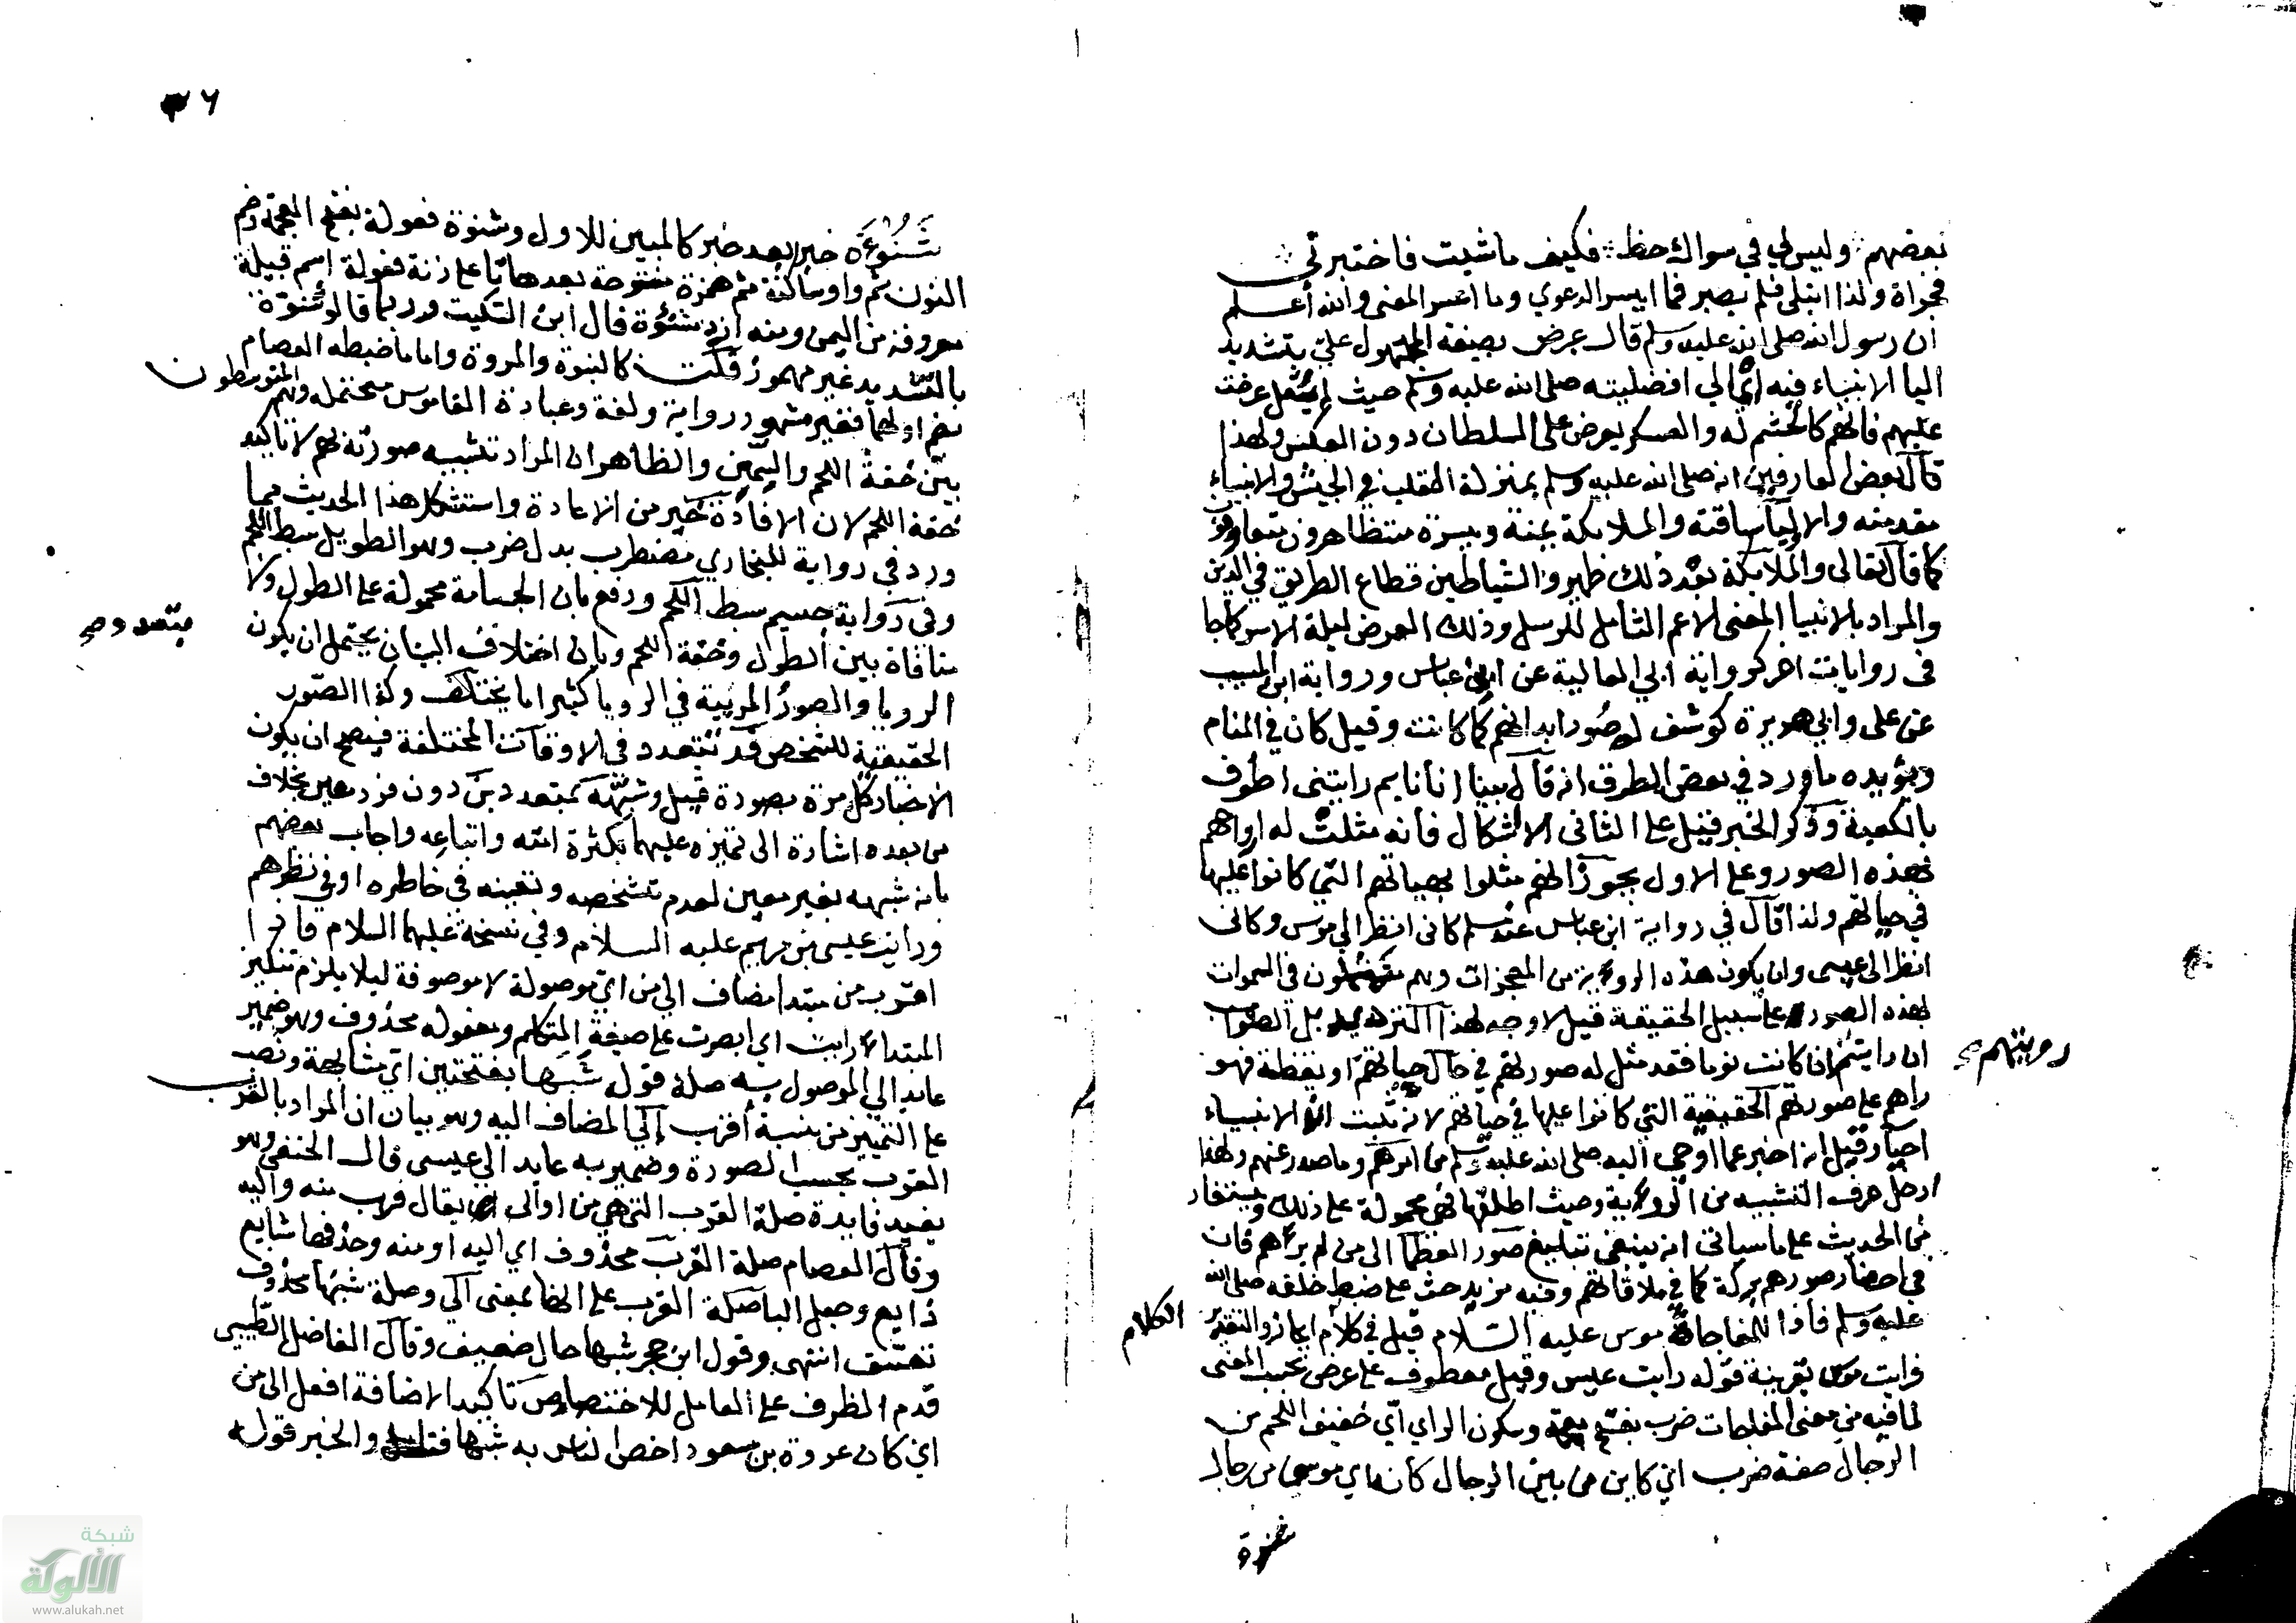 بعضهم وليس لي في سواك حظ فكيف ما شيت فاختبرني
فجراة ولذا ابتلى فلم يصبر فما ايسر الدعوي وما اعسر المعنى والله أعلم
ان رسول الله صلى الله عليه وسلم قال عرض بصيغة المجهول علىّ بتشديد
اليا الانبياء فيه ايماالي افضليته صلى الله عليه وسلم حيث لم يقل عرضت
عليهم فانهم كالحشم له والعسكر يعرض على السلطان دون العكس ولهذا
قال بعض العارفين انه صلى الله عليه وسلم بمنزلة القلب في الجيش والانبياء
مقدمته والاوليا ساقته والملايكة يمنة ويسرة متظاهرون متعاونون
كما قال تعالى والملايكة بعد ذلك ظهير والشياطين قطاع الطريق في الدين
والمراد بالانبيا المعنى الاعم الشامل للرسل وذلك العرض ليلة الاسرا كما جا
فى روايات اخر كرواية ابي العالية عن ابن عباس ورواية ابن المسيب
عن على وابي هريرة كوشف له صور ابدانهم كما كانت وقيل كان في المنام
ويؤيده ما ورد في بعض الطرق انه قال بينا انا نايم رايتنى اطوف
بالكعبة وذكر الخبر فقيل على الثانى لا اشكال فانه مثلت له ارواحهم
بهذه الصور وعلى الاول يجوز انهم مثلوا بهياتهم التي كانوا عليها
في حياتهم ولذا قال في رواية ابن عباس عند مسلم كانى انظر الى موسى وكانى
انظر الى عيسى وان يكون هذه الروية من المعجزات وهم متمثلون في السموات
بهذه الصور على سبيل الحقيقة قيل لا وجه لهذا بل الصواب
ان رؤيتهم ان كانت نوما فقد مثل له صورتهم في حال حياتهم او يقظة فهو
راهم على صورتهم الحقيقية التي كانوا عليها في حياتهم لانه ثبت ان الانبياء
احيا وقيل انه اخبر عما اوحى اليه صلى الله عليه وسلم من امرهم وما صدر عنهم ولهذا
ادخل حرف التشبيه من الروية وحيث اطلقها فهي محمولة على ذلك ويستفاد
من الحديث على ما سياتى انه ينبغي تبليغ صور العظما الى من لم يراهم فان
في احضار صورهم بركة كما في ملاقاتهم وفيه مزيد حث على ضبط خلقه صلى الله
عليه وسلم فاذا للمفاجاة موسى عليه السلام قيل في كلام ايجاز والتقدير
فرايت موسى بقرينة قوله رايت عيسى وقيل معطوف على عرض بحسب المعنى
لما فيه من معنى المفاجات ضرب بفتح وسكون الراي اي خفيف اللحم من
الرجال صفة ضرب اي كاين من بين الرجال كانه اي موسى من رجال
شنوة
رويتهم صح
الكلام
٢٦
شَنُوءَة خبر بعد خبر كالمبين للاول وشنوة فعولة بفتح المعجمة وضم
النون ثم واو ساكنة ثم همزة مفتوحة بعدها تا على زنة فعولة اسم قبيلة
معروفة من اليمن ومنه ازد شنؤة قال ابن السكيت وربما قالوا شنوّة
بالتشديد غير مهموز قلت كالنبوة والمروة واما ما ضبطه العصام
بضم اولهما فغير مشهور رواية ولغة وعبارة القاموس محتملة وهم المتوسطون
بين خفة اللحم والسمن والظاهر ان المراد تشبيه صورته بهم لا تاكيد
خفة اللحم لان الافادة خير من الاعادة واستشكل هذا الحديث بما
ورد في رواية للبخاري مضطرب بدل ضرب وهو الطويل سبط اللحم
وفى رواية جسيم سبط اللحم ودفع بان الجسامة محمولة على الطول ولا
منافاة بين الطول وخفة اللحم وبان اختلاف البيان يحتمل ان يكون
الرويا والصور المريية في الرويا كثيرا ما يختلف وكذا الصور
الحقيقية للشخص قد تتعدد في الاوقات المختلفة فيصح ان يكون
الاخبار كل مرة بصورة قيل وشبهه بمتعددين دون فرد معين بخلاف
من بعده اشارة الى تميزه عليهما بكثرة امته واتباعه واجاب بعضهم
بانه شبهه بغير معين لعدم تشخصه وتعينه في خاطره او في نظرهم
ورايت عيسى بن مريم عليه السلام وفي نسخة عليهما السلام فاذا
اقرب من مبتدا مضاف الى من اي موصولة لا موصوفة ليلا يلزم تنكير
المبتدا رايت اي ابصرت على صيغة المتكلم ومفعوله محذوف وهو ضمير
عايد الى الموصول به صلة قوله شَبَها بفتحتين اي مشابهة ونصب
على التمييز من نسبة أقرب إلي المضاف اليه وهو بيان ان المراد بالقرب
القرب بحسب الصورة وضمير به عايد الي عيسى قال الحنفي وهو
يفيد فايدة صلة القرب التي هي من او الى يقال قرب منه واليه
وقال العصام صلة القرب محذوف اي اليه او منه وحذفها شايع
ذايع وجعل البا صلة القرب على انها بمعنى الى وصلة شبها محذوف
تعسف انتهى وقول ابن حجر شبها حال ضعيف وقال الفاضل الطيبي
قدم الظرف على العامل للاختصاص تاكيدا لاضافة افعل الى من
اي كان عروة بن مسعود اخص الناس به شبها والخبر قوله
متعدد صح
شبكة
الألوكة
www.alukah.net